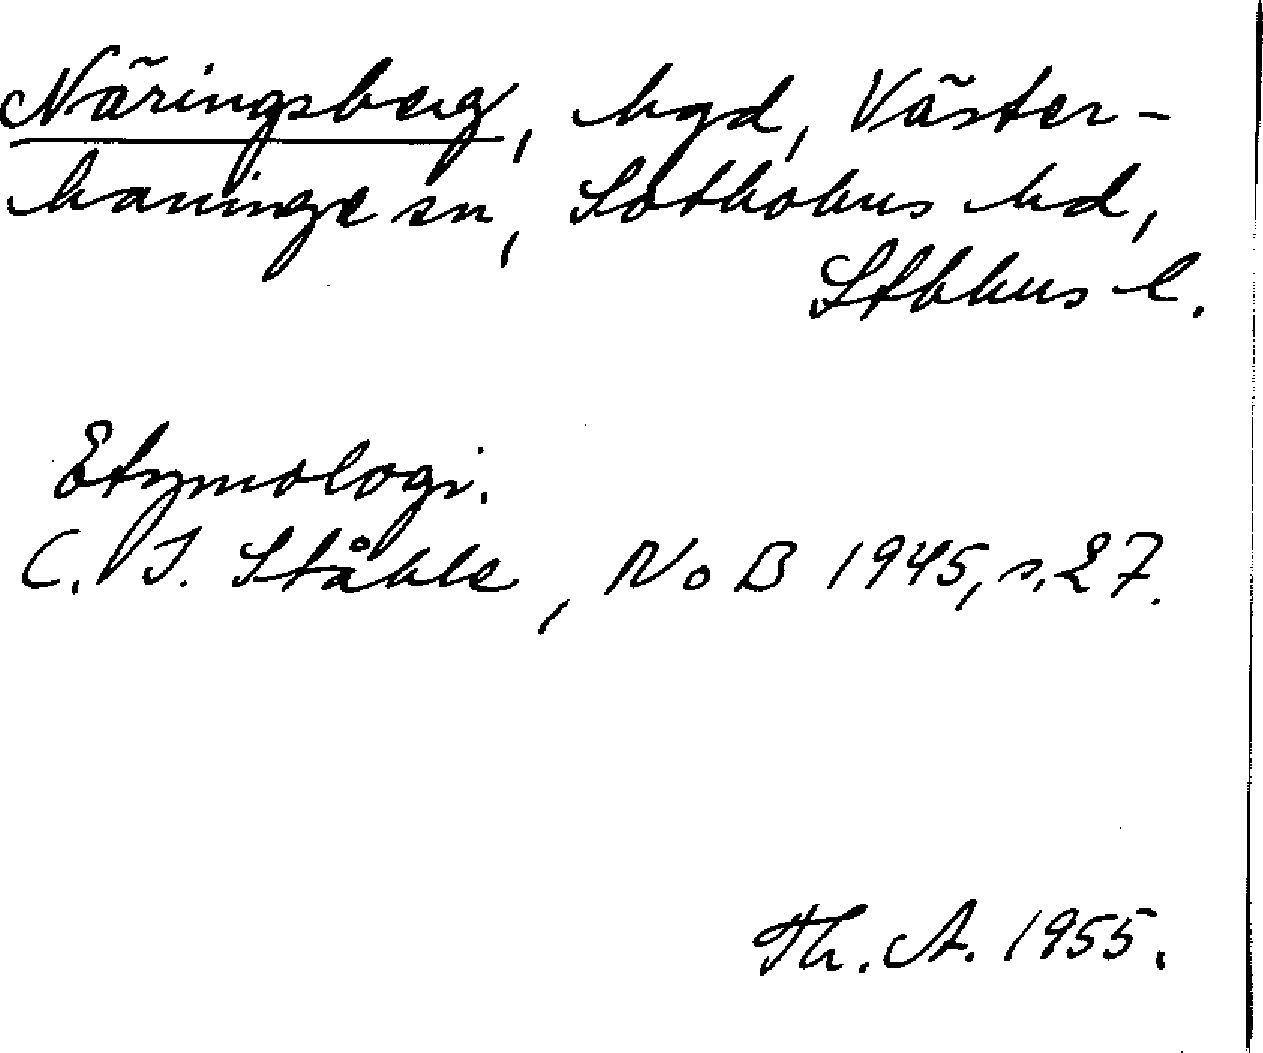 Näringsberg, hgd, Väster-
haninge sn, Sotholms hd,
Sthlms l.
Etymologi.
C. I. Ståhle, NoB 1945, s. 27.
Th. A. 1955.